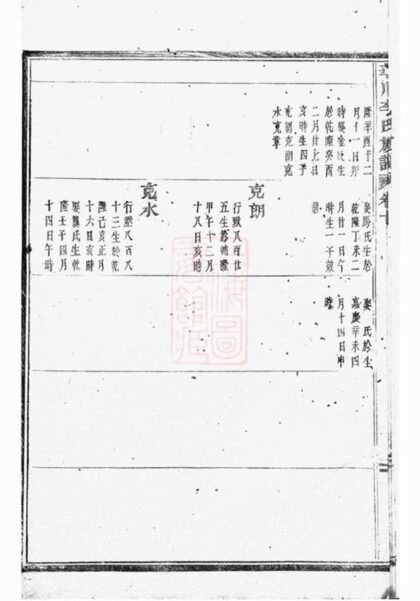 隆辛酉十二
月廿一日卯
時娶金氏生
於乾隆癸酉
二月廿七日
亥時生四子
克朗克
水克章
娶馬氏生於
乾隆丁未二
月廿一日午
時生一子
娶 氏於生
嘉慶辛未四
月十四日申
克朗
行獻八百仕
五生於乾隆
甲午十二月
十八日亥時
克水
行獻八百八
十三生於乾
隆己亥正月
十六日亥時
娶龔氏生乾
隆壬子四月
十四日午時
李氏族譜
卷十